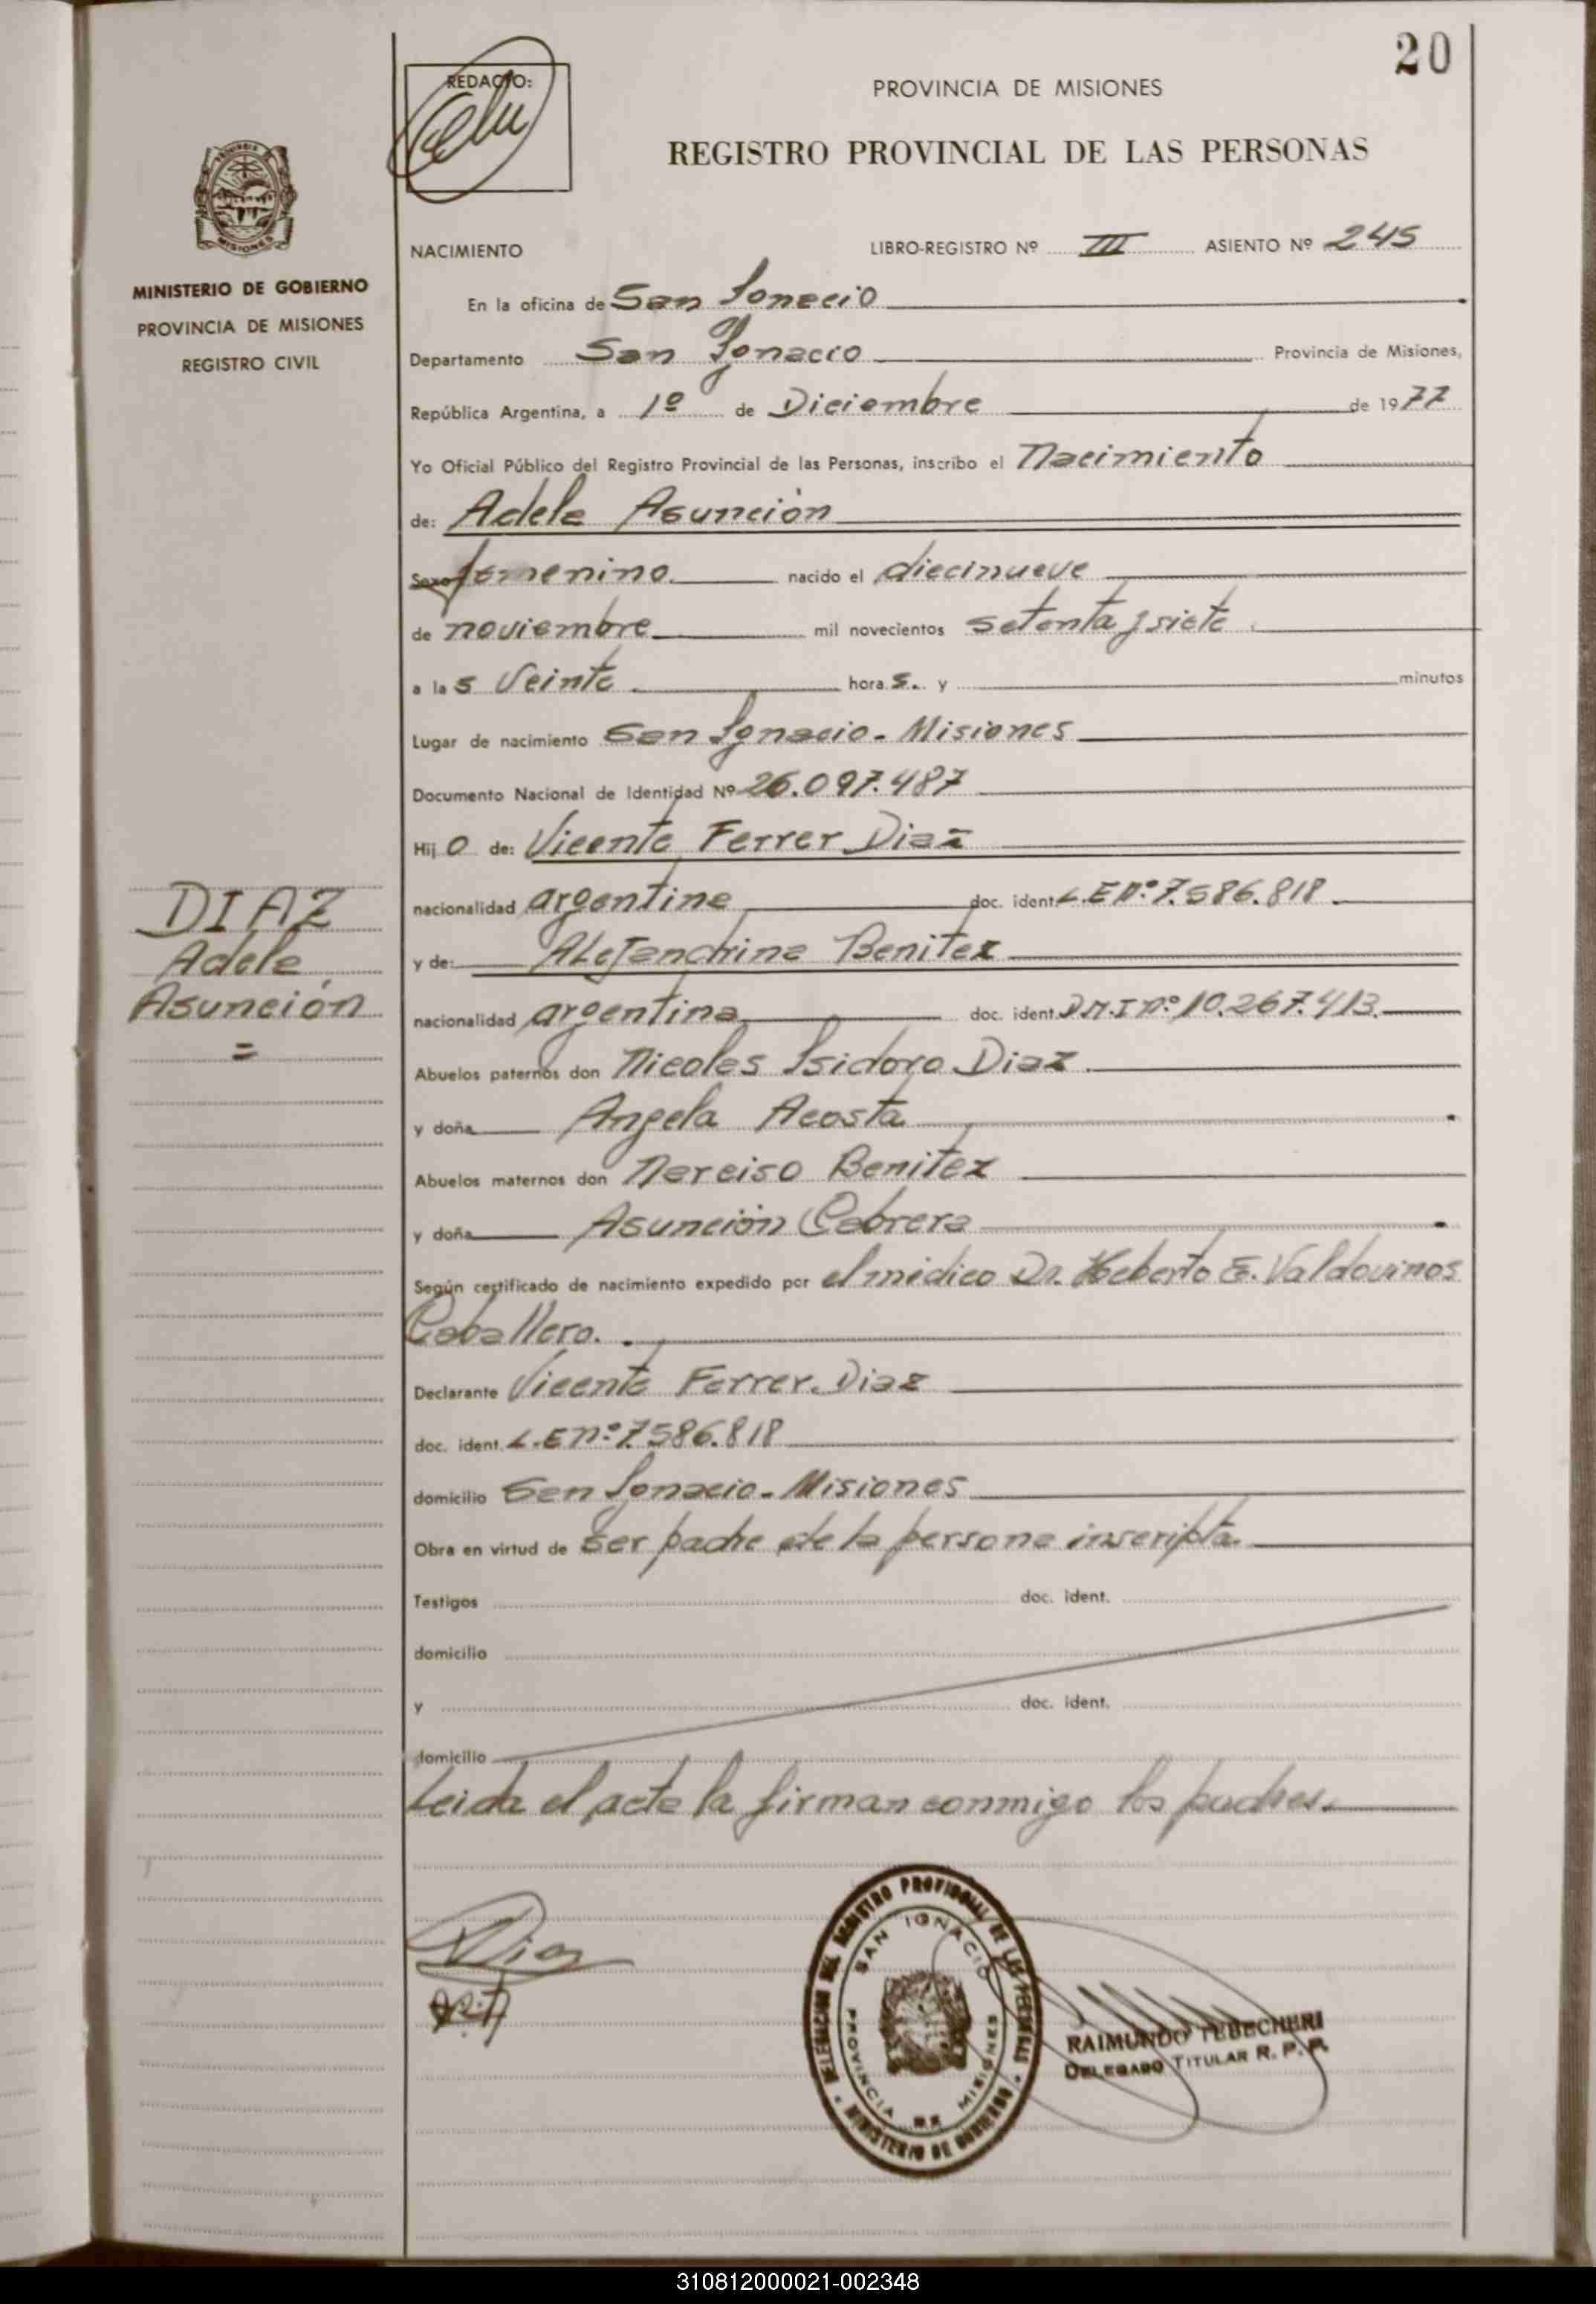 20
REDACTO:
PROVINCIA DE MISIONES
REGISTRO PROVINCIAL DE LAS PERSONAS
MISIONES
MINISTERIO DE GOBIERNO
PROVINCIA DE MISIONES
REGISTRO CIVIL
NACIMIENTO LIBRO-REGISTRO Nº III ASIENTO Nº 245
En la oficina de San Ignacio
Departamento San Ignacio Provincia de Misiones,
República Argentina, a 1º de Diciembre de 1977
Yo Oficial Público del Registro Provincial de las Personas, inscribo el Nacimiento
de: Adela Asunción
Sexo femenino nacido el diecinueve
de noviembre mil novecientos setenta y siete
a las veinte horas y minutos
Lugar de nacimiento San Ignacio - Misiones
Documento Nacional de Identidad Nº 26.097.487
Hijo de: Vicente Ferrer Diaz
nacionalidad argentina doc. ident. L.E nº 7.586.818
y de: Alejandrina Benitez
nacionalidad argentina doc. ident. D.N.I nº 10.267.413
Abuelos paternos don Nicolas Isidoro Diaz
y doña Angela Acosta
Abuelos maternos don Narciso Benitez
y doña Asunción Cabrera
Según certificado de nacimiento expedido por el médico Dr. Heberto E. Valdovinos
Caballero.
Declarante Vicente Ferrer Diaz
doc. ident. L.E nº 7.586.818
domicilio San Ignacio - Misiones
Obra en virtud de ser padre de la persona inscripta
Testigos doc. ident.
domicilio
y doc. ident.
domicilio
Leida el acta la firman conmigo los padres.
DIAZ
Adela
Asunción
=
Diaz
DELEGACION DEL REGISTRO PROVINCIAL DE LAS PERSONAS
MINISTERIO DE GOBIERNO
SAN IGNACIO
PROVINCIA DE MISIONES
RAIMUNDO TEBECHERI
DELEGADO TITULAR R. P. P.
310812000021-002348